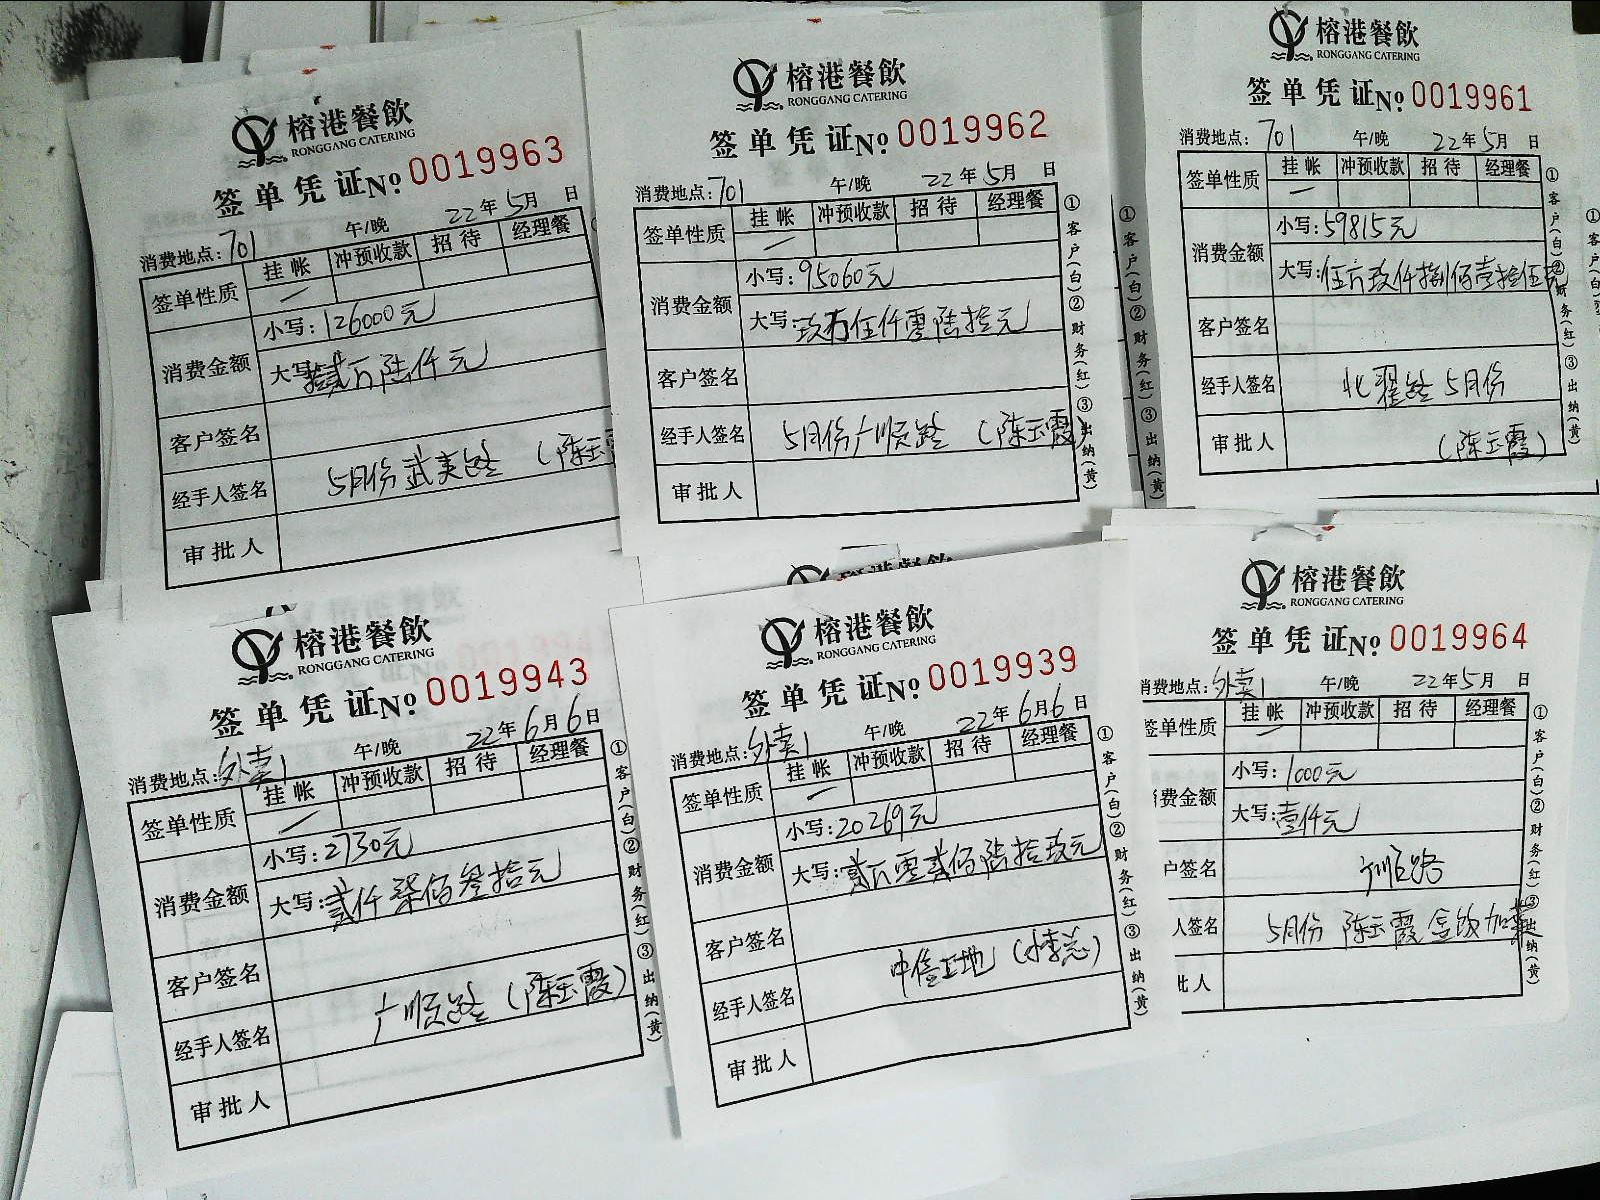 榕港餐飲
RONGGANG CATERING
签单凭证№ 0019963
消费地点:701 午/晚 22年5月 日
签单性质 挂帐 冲预收款 招待 经理餐
消费金额 小写:126000元
大写:拾贰万陆仟元
客户签名
经手人签名 5月份武夷路 (陈玉霞
审批人
榕港餐飲
RONGGANG CATERING
签单凭证№ 0019962
消费地点:701 午/晚 22年5月 日
签单性质 挂帐 冲预收款 招待 经理餐
消费金额 小写:95060元
大写:玖万伍仟零陆拾元
客户签名
经手人签名 5月份广顺路 (陈玉霞)
审批人
①客户(白)②财务(红)③出纳(黄)
①客户(白)②财务(红)③出纳(黄)
榕港餐飲
RONGGANG CATERING
签单凭证№ 0019961
消费地点:701 午/晚 22年5月 日
签单性质 挂帐 冲预收款 招待 经理餐
消费金额 小写:59815元
大写:伍万玖仟捌佰壹拾伍元
客户签名
经手人签名 北翟路5月份
审批人 (陈玉霞)
①客户(白)②财务(红)③出纳(黄)
榕港餐飲
RONGGANG CATERING
签单凭证№ 0019943
消费地点:外卖1 午/晚 22年6月6日
签单性质 挂帐 冲预收款 招待 经理餐
消费金额 小写:2730元
大写:贰仟柒佰叁拾元
客户签名
经手人签名 广顺路(陈玉霞)
审批人
①客户(白)②财务(红)③出纳(黄)
榕港餐飲
RONGGANG CATERING
签单凭证№ 0019939
消费地点:外卖1 午/晚 22年6月6日
签单性质 挂帐 冲预收款 招待 经理餐
消费金额 小写:20269元
大写:贰万零贰佰陆拾玖元
客户签名
经手人签名 中信工地(李总)
审批人
①客户(白)②财务(红)③出纳(黄)
榕港餐飲
RONGGANG CATERING
签单凭证№ 0019964
消费地点:外卖1 午/晚 22年5月 日
签单性质 挂帐 冲预收款 招待 经理餐
消费金额 小写:1000元
大写:壹仟元
户签名 广顺路
人签名 5月份 陈玉霞 盒饭加菜
批人
①客户(白)②财务(红)③出纳(黄)